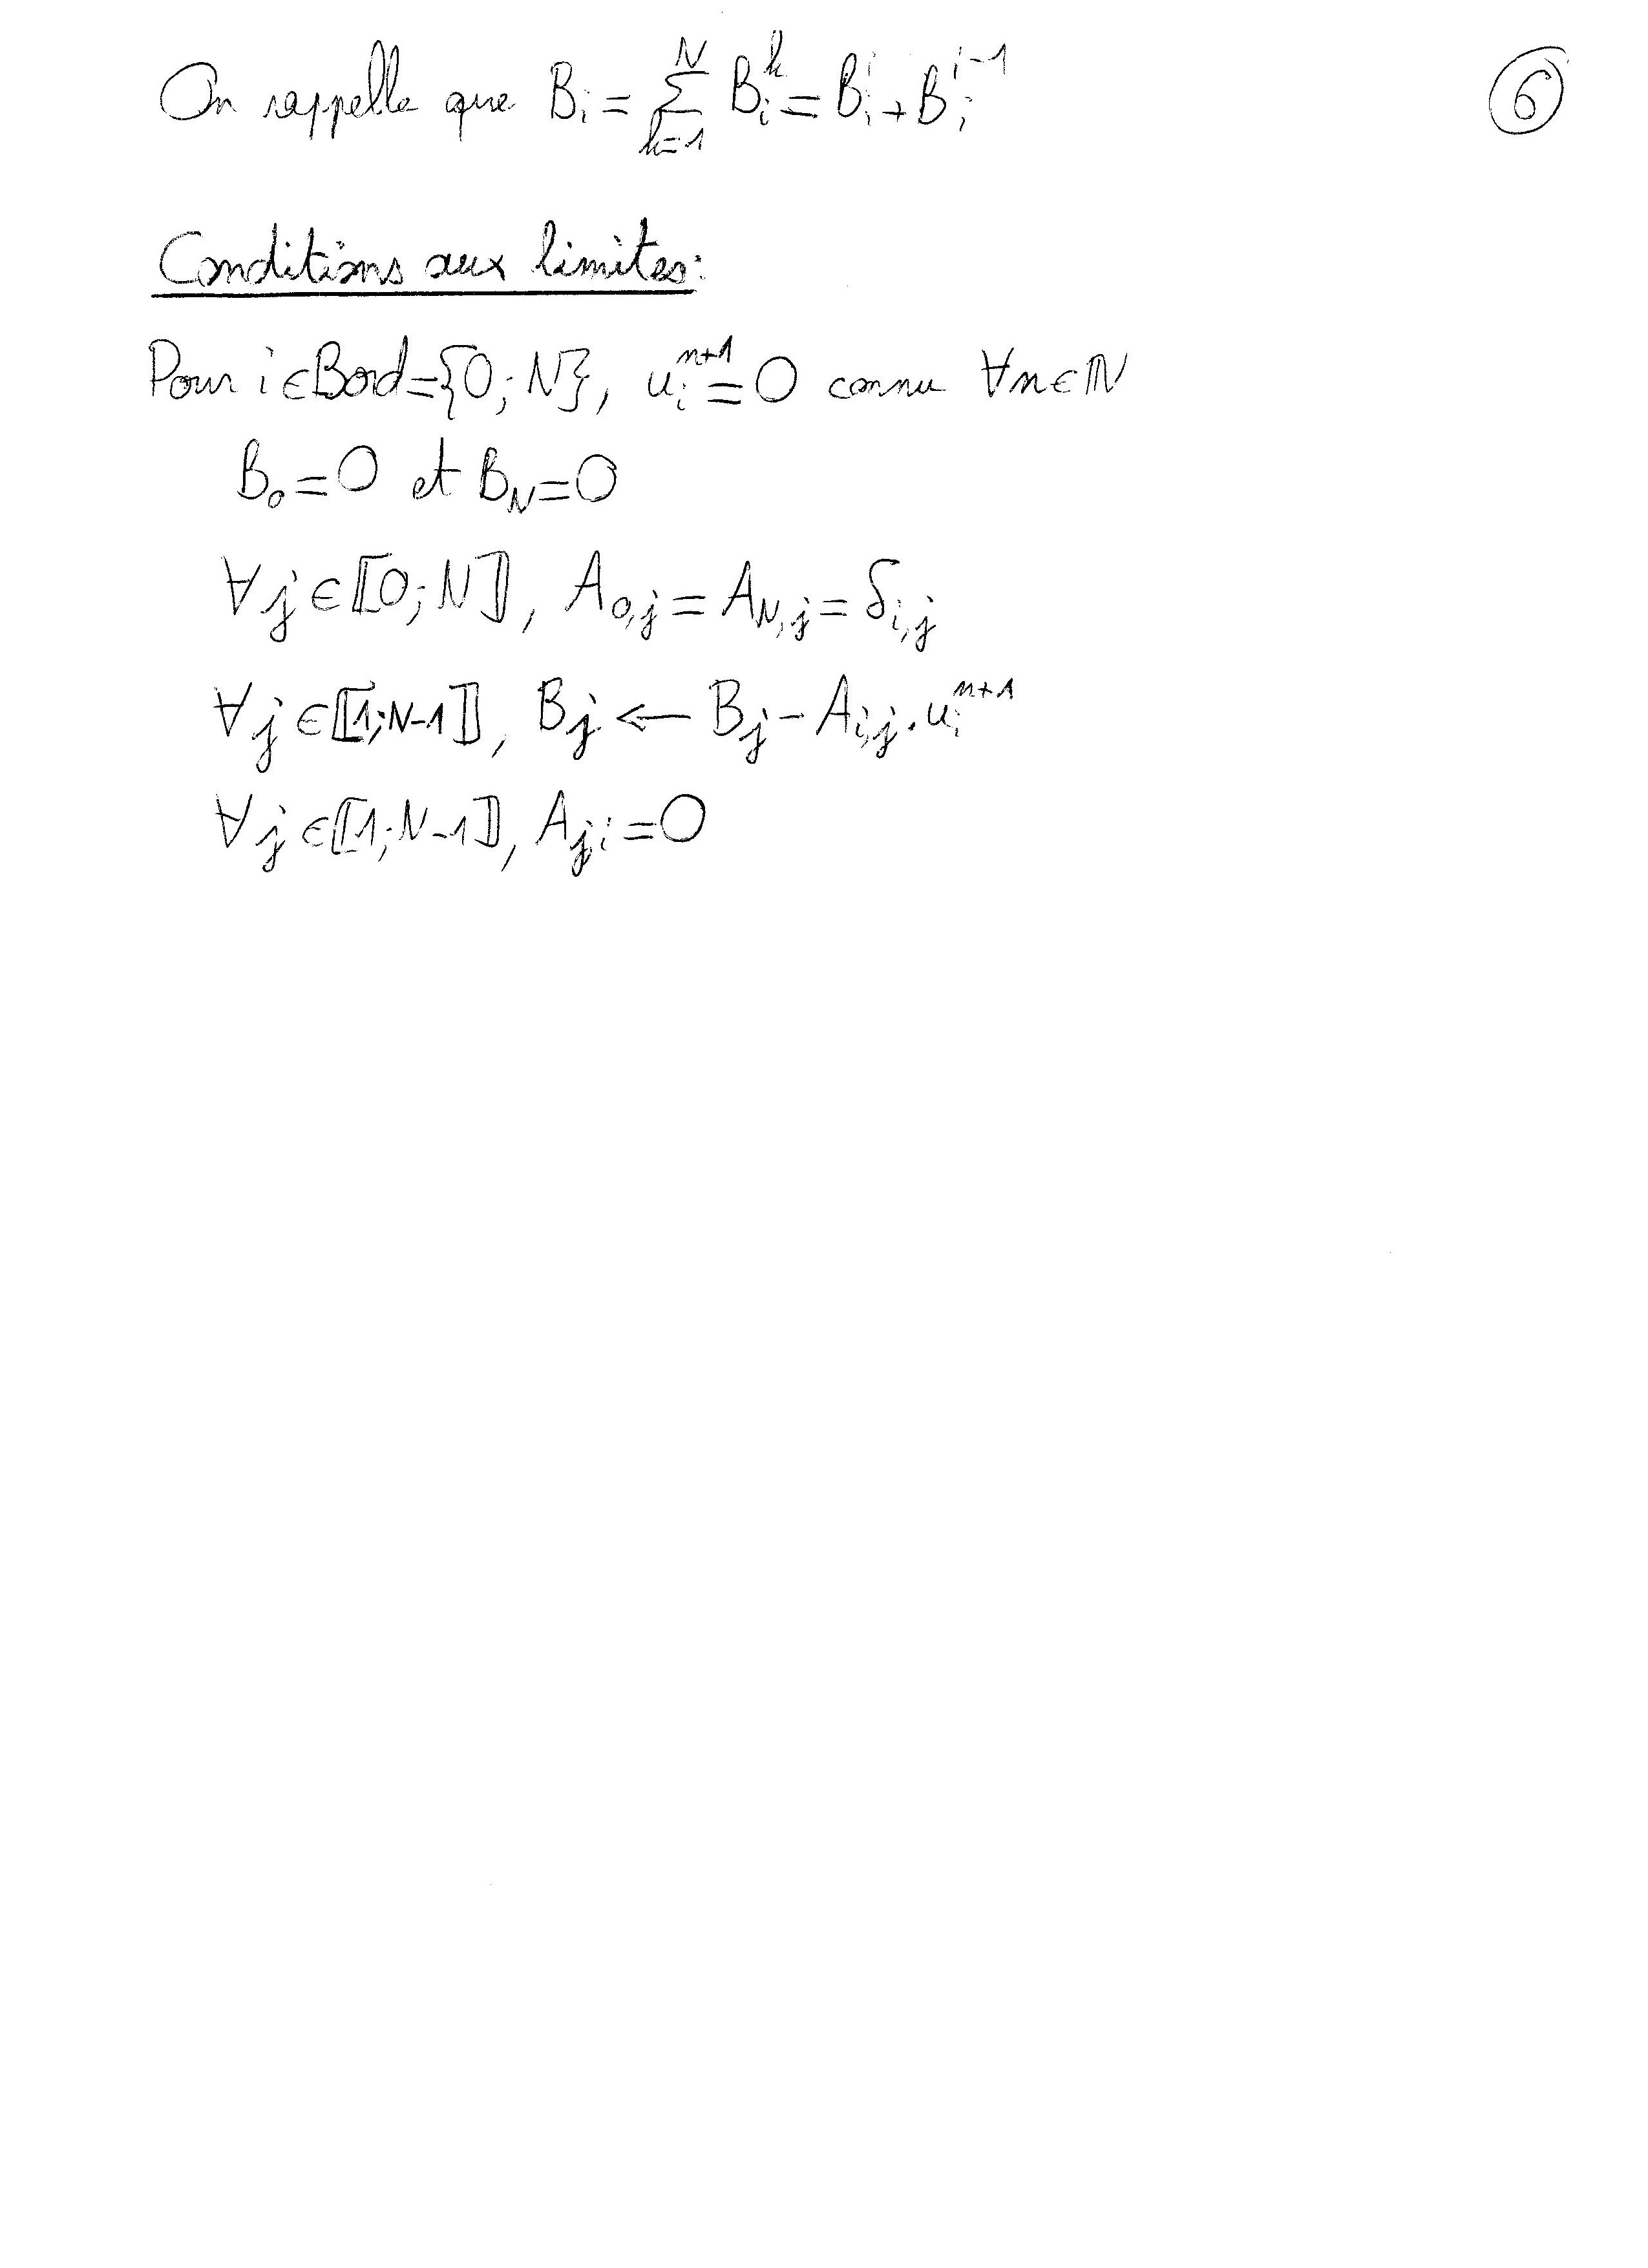 On rappelle que B_i = \sum_{k=1}^{N} B_i^k = B_i^i + B_i^{i-1}
⑥
Conditions aux limites:
Pour i ∈ Bord = {0; N}, u_i^{n+1} = 0 connu ∀n ∈ ℕ
B_0 = 0 et B_N = 0
∀j ∈ ⟦0; N⟧, A_{0,j} = A_{N,j} = δ_{i,j}
∀j ∈ ⟦1; N-1⟧, B_j ← B_j - A_{i,j} . u_i^{n+1}
∀j ∈ ⟦1; N-1⟧, A_{j,i} = 0